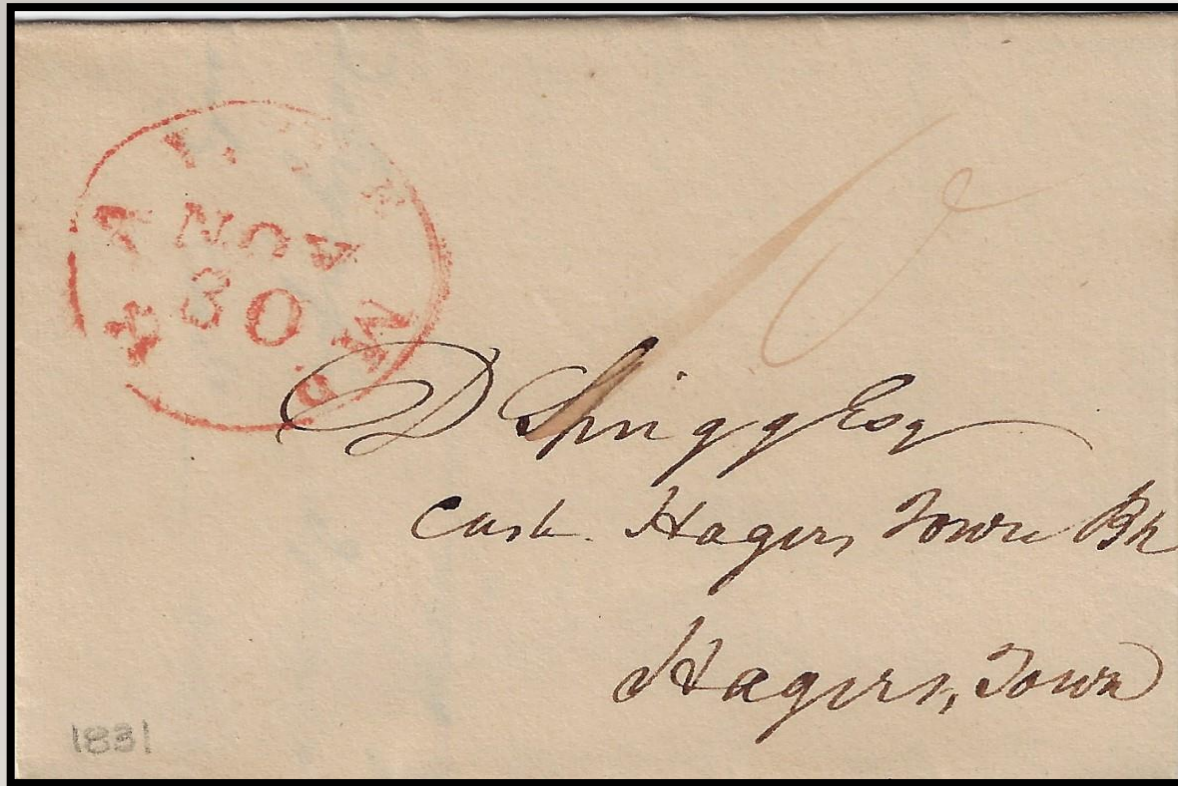 NOV
30
MD
10
D Sprigg Esq
Cash. Hagers Town Bk
Hagers, Town
1831